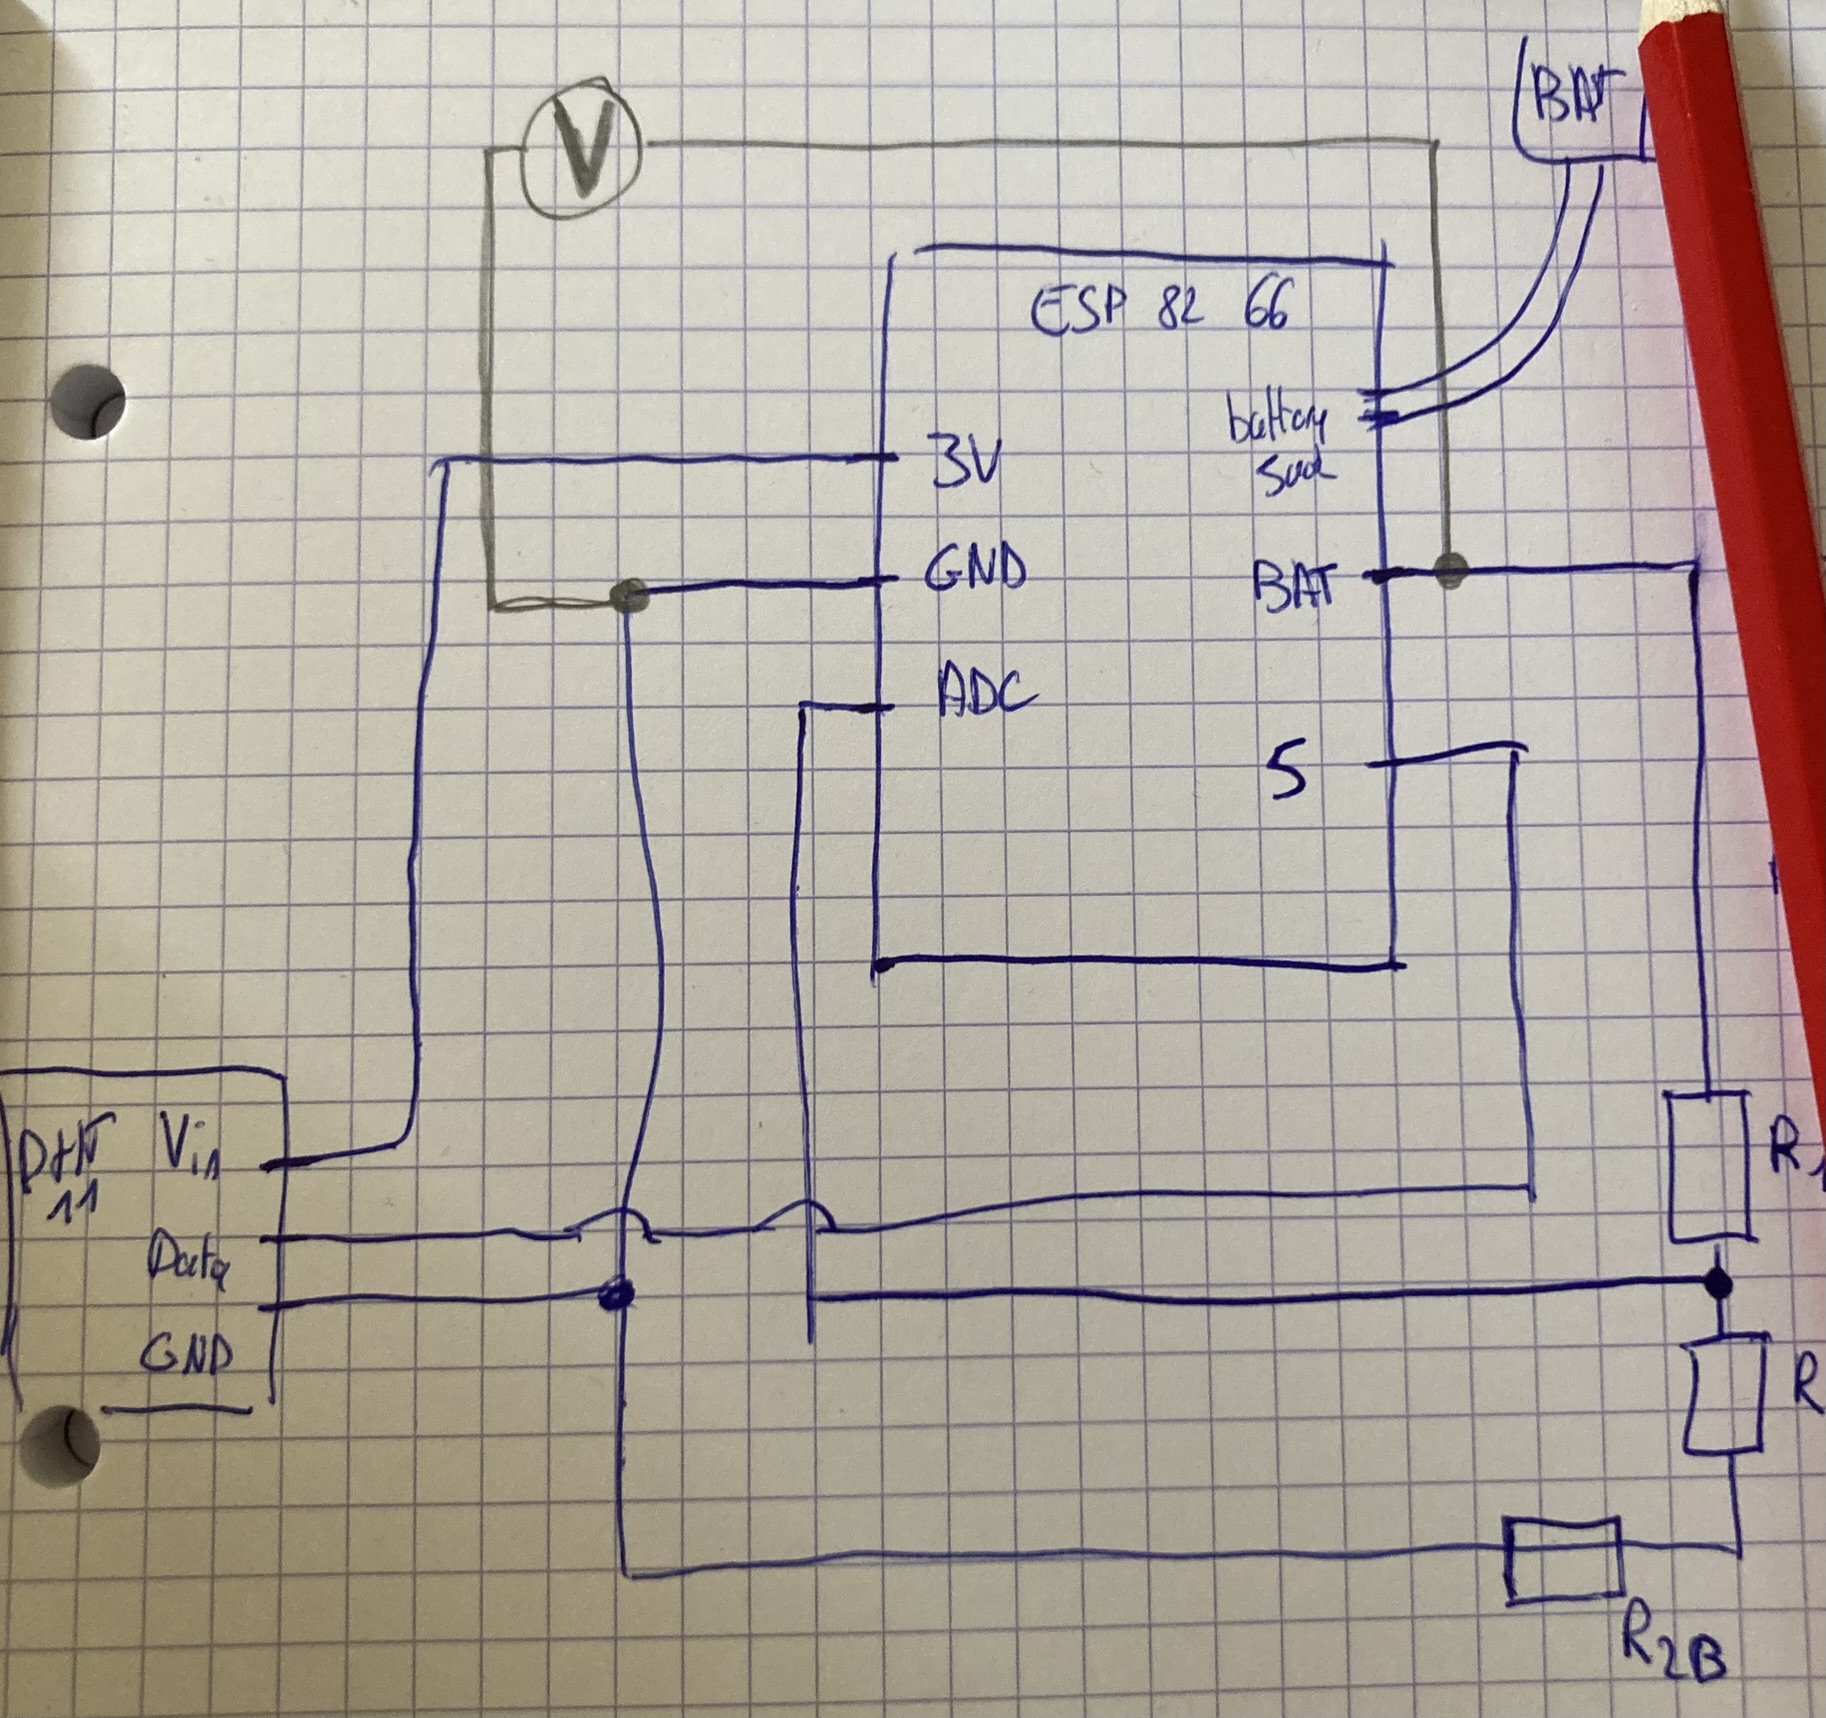 BAT
V
ESP 82 66
battery
3V
GND
BAT
ADC
5
DHT
11
Vin
R1
Data
GND
R
R2B